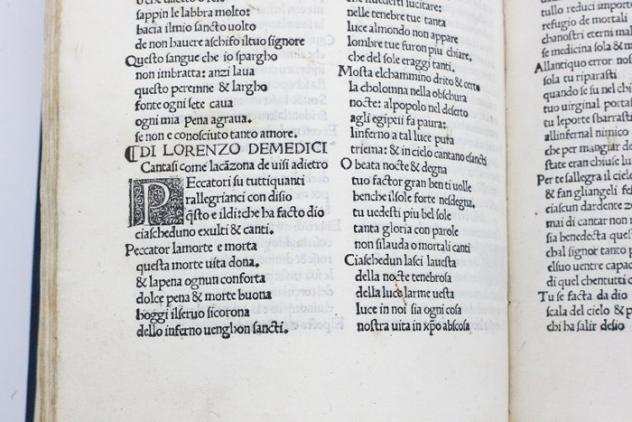 sappin le labbra molto:
bacia ilmio sancto uolto
de non hauere aschifo iltuo signore
Questo sangue che io spargho
non imbratta: anzi laua
questo perenne & largho
fonte ogni sete caua
ogni mia pena agraua.
se non e conosciuto tanto amore.
DI LORENZO DEMEDICI
Cantasi come lacãzona de uisi adietro
PEccatori su tuttiquanti
rallegrianci con disio
q̃sto e ildi: che ha facto dio
ciascheduno exulti & canti.
Peccator lamorte e morta
questa morte uita dona.
& lapena ognun conforta
dolce pena & morte buona
hoggi ilseruo sicorona
dello inferno uenghon sancti.
che uderti lucitare:
nelle tenebre tue tanta
luce almondo non appare
lombre tue furon piu chiare.
che del sole eraggi tanti.
Mosta elchammino dritto & certo
la cholomna nella obschura
nocte: alpopolo nel deserto
agli egiptii fa paura:
linferno a tal luce puta
triema: & in cielo cantano esancti
O beata nocte & degna
tuo factor gran ben ti uolle
benche ilsole forte nesdegna.
tu uedesti piu bel sole
tanta gloria con parole
non silauda o mortali canti
Ciaschedun lasci lauesta
della nocte tenebrosa
della luce larme uesta
luce in noi sia ogni cosa
nostra uita in xp̃o abscosa
tullo reduci importo
refugio de mortali
chanostri eterni mal
se medicina sola & m
Allantiquo error nos
sola tu riparasti
quando se su nel chi
tuo uirginal portast
tu leporte sbarrasti
allinfernal nimico
che per mangiar de
state eran chiuse lu
Per te sallegra il ciel
& fan gliangeli fes
ciascun dardente ze
mai di cantar non r
sia benedecta ques
chal signor tanto p
elsuo uentre capac
di quel chentutti c
Tu se facta da dio
scala del cielo & p
chi ha salir desio